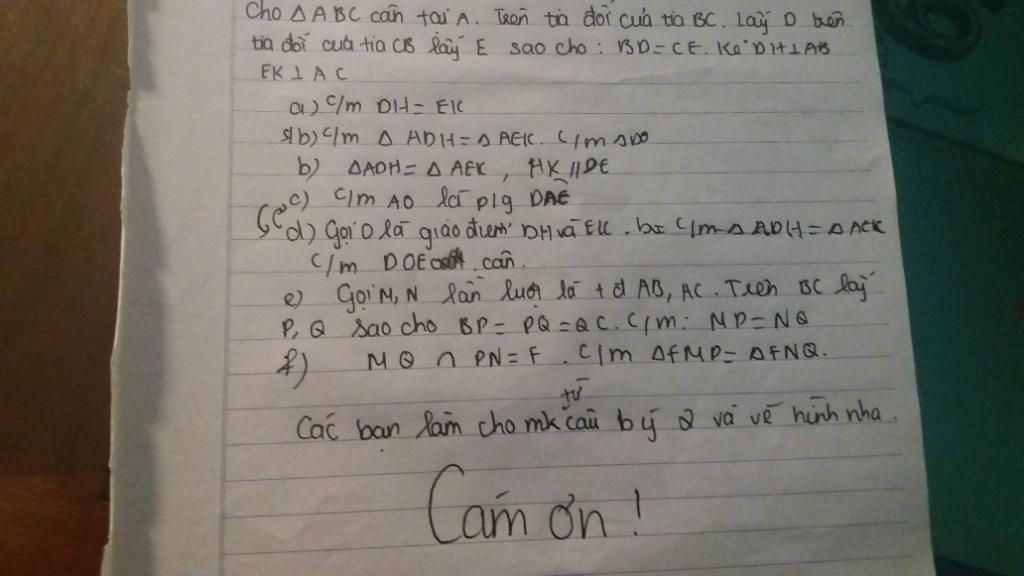 Cho △ABC cân tại A. Trên tia đối của tia BC. Lấy D trên
tia đối của tia CB lấy E sao cho: BD=CE. Kẻ DH⊥AB
EK⊥AC
a) c/m DH=EK
b) c/m △ADH=△AEK. C/m
b) △ADH=△AEK, HK//DE
c) C/m AO là p/g DAE
d) Gọi O là giao điểm DH và EK. C/m △ADH=△AEK
C/m DOE cân.
e) Gọi M, N lần lượt là t đ AB, AC. Trên BC lấy
P, Q sao cho BP=PQ=QC. C/m: MP=NQ
f) MQ ∩ PN=F. C/m △FMP=△FNQ.
từ
Các bạn làm cho mk câu b ý 2 và vẽ hình nha.
Cám ơn!